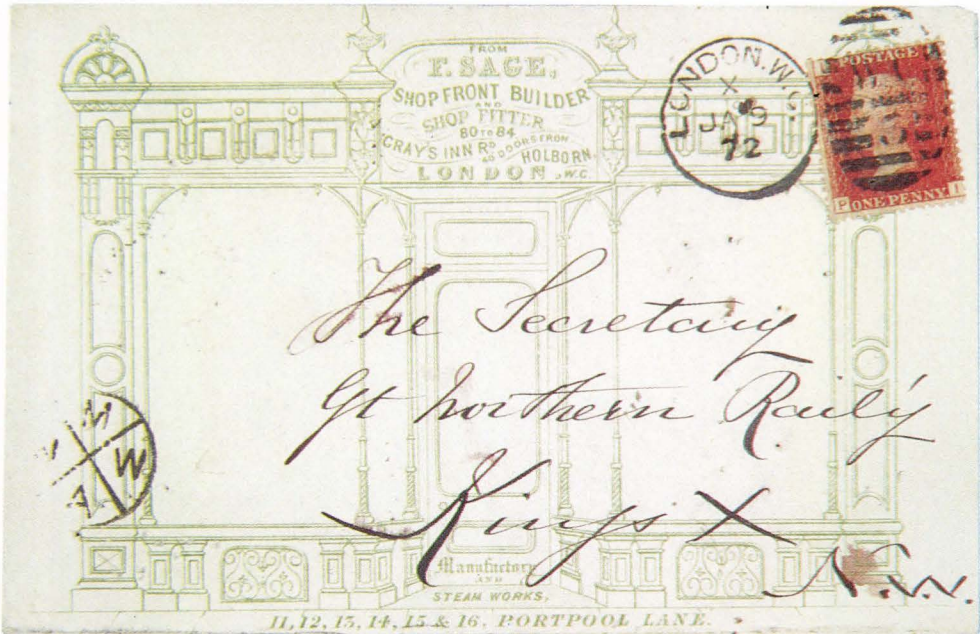 FROM
F. SAGE,
SHOP FRONT BUILDER
AND
SHOP FITTER
80 TO 84
GRAY'S INN RD 40 DOORS FROM HOLBORN.
LONDON, W.C.
LONDON.W.C.
X
JA 9
72
POSTAGE
P ONE PENNY I
The Secretary
Gt Northern Raily
Kings X
N.W.
Manufactory
AND
STEAM WORKS,
11, 12, 13, 14, 15 & 16, PORTPOOL LANE.